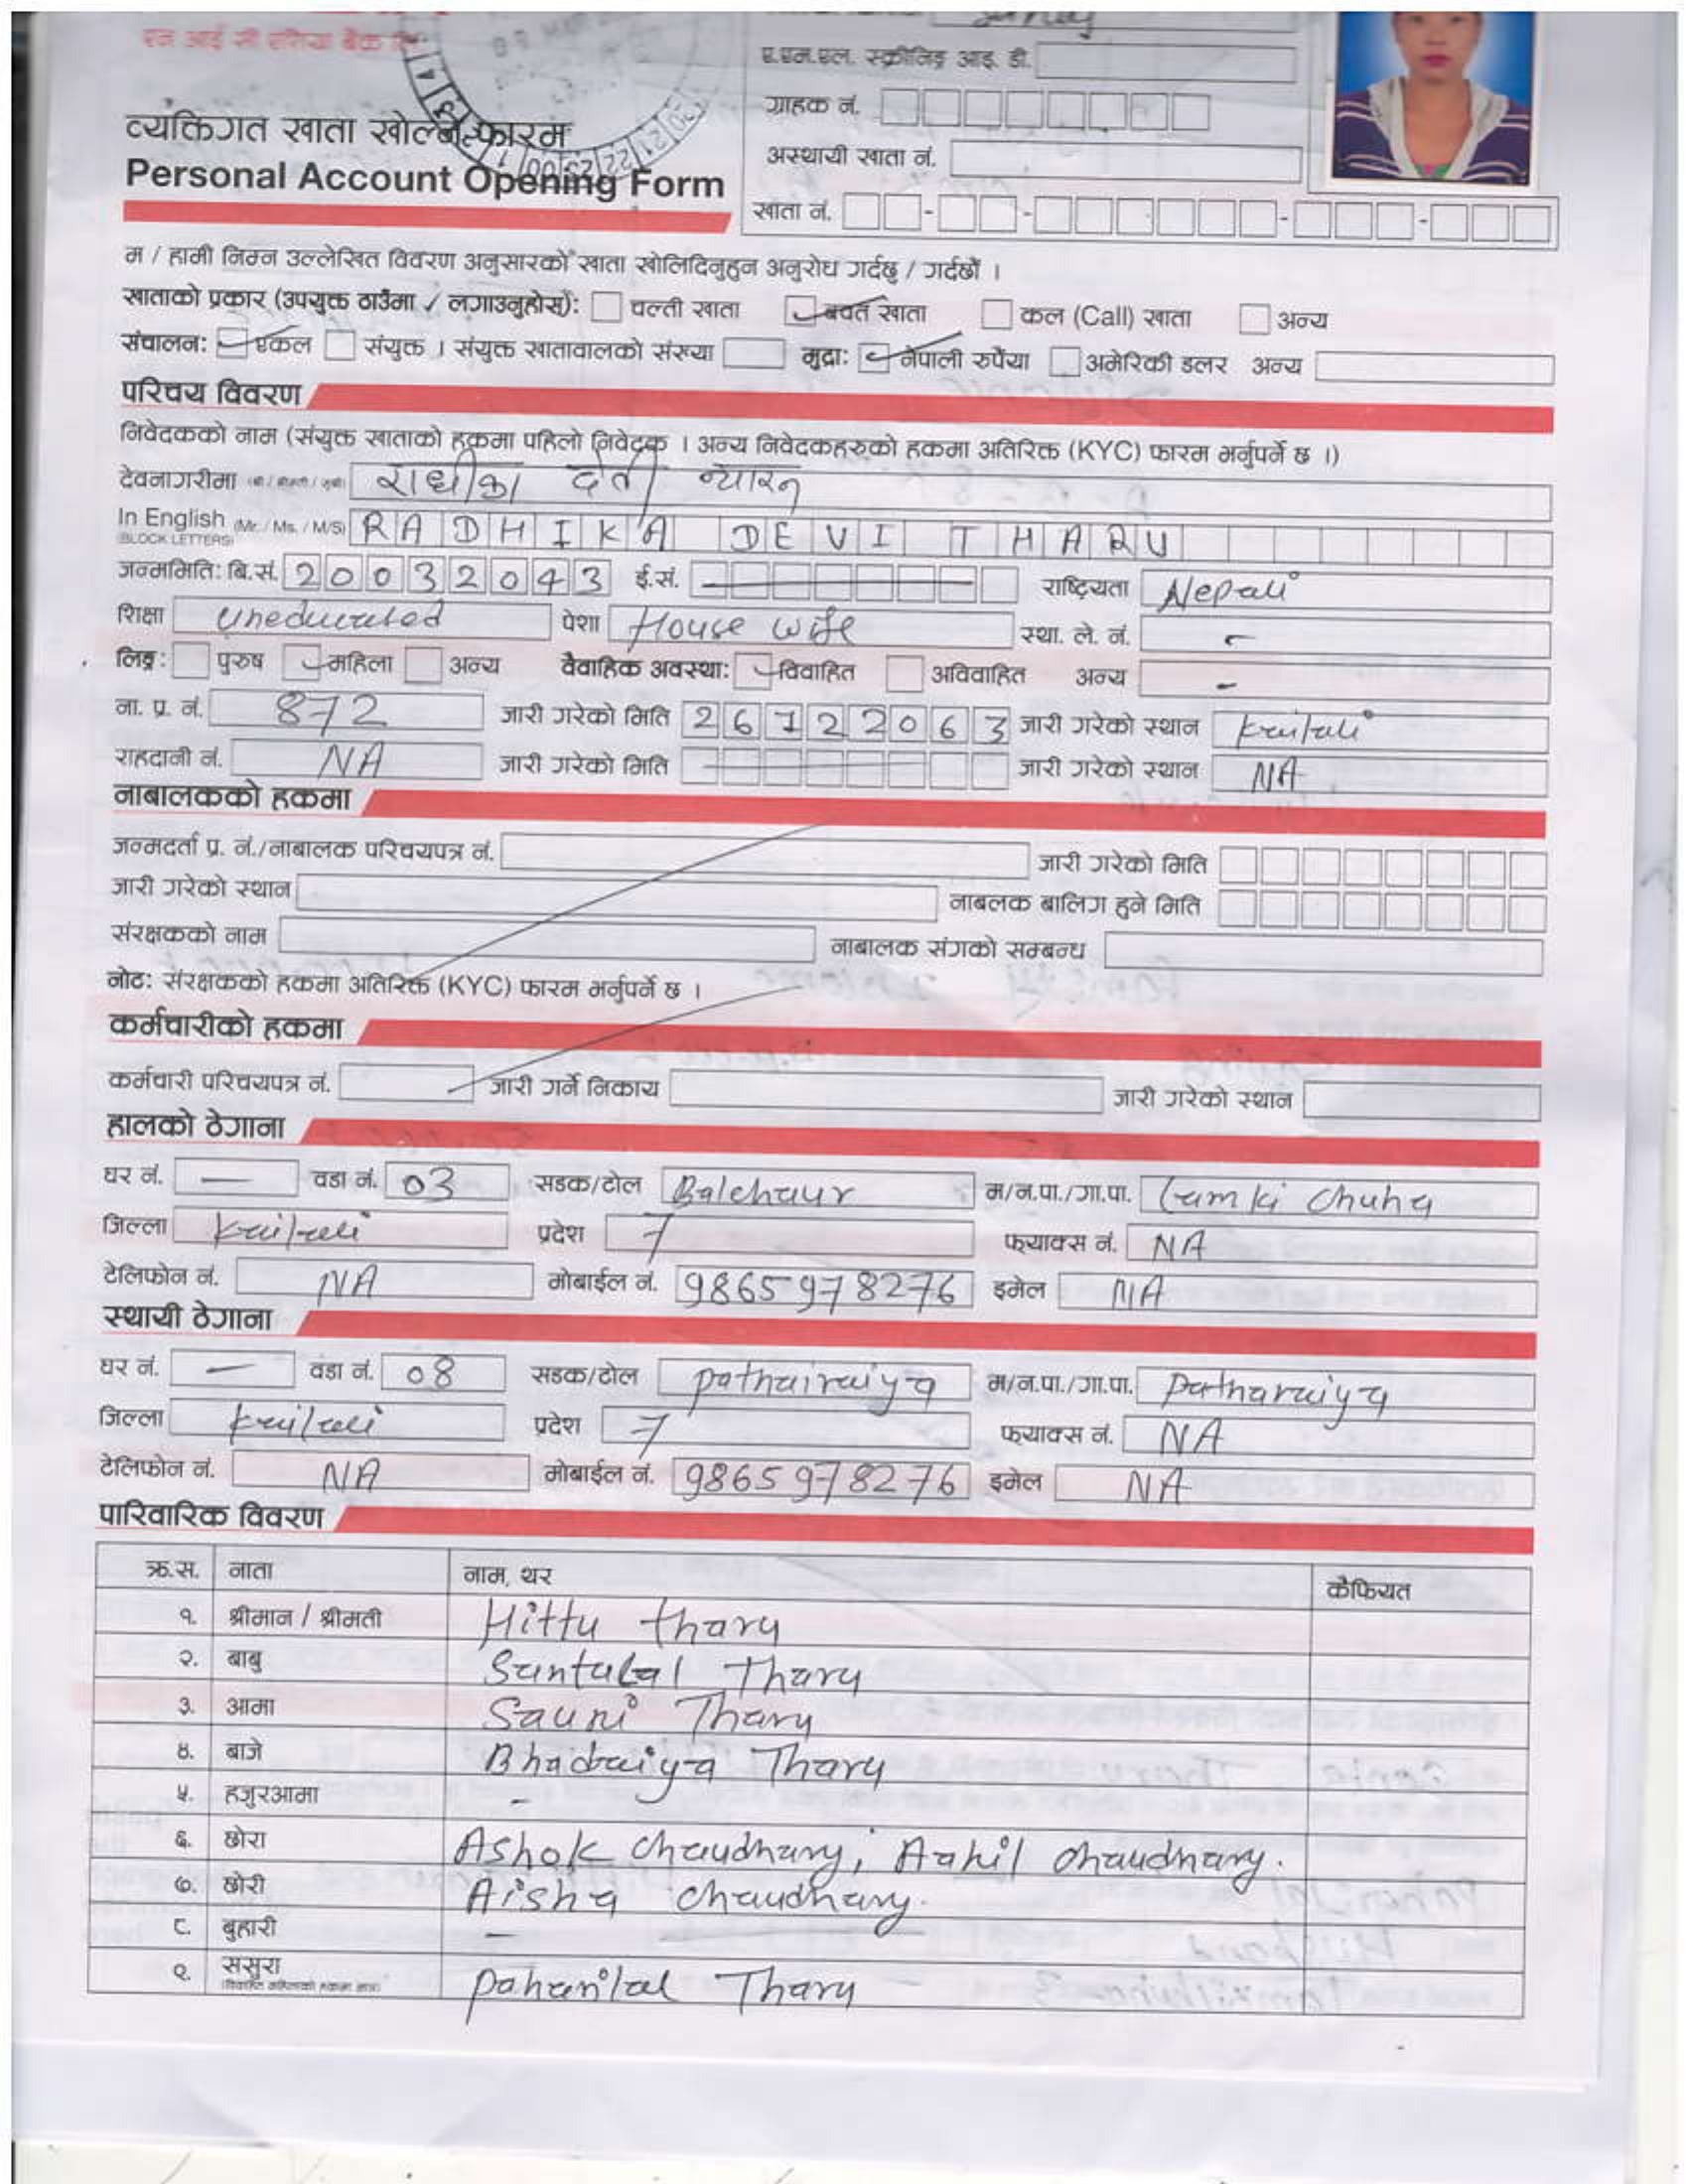 एन आई सी एशिया बैंक लि
ए.एम.एल. स्क्रीनिङ्ग आइ. डी.
ग्राहक नं.
अस्थायी खाता नं.
खाता नं.
व्यक्तिगत खाता खोल्ने फारम
Personal Account Opening Form
म / हामी निम्न उल्लेखित विवरण अनुसारको खाता खोलिदिनुहुन अनुरोध गर्दछु / गर्दछौं ।
खाताको प्रकार (उपयुक्त ठाउँमा ✓ लगाउनुहोस्): चल्ती खाता बचत खाता कल (Call) खाता अन्य
संचालन: एकल संयुक्त । संयुक्त खातावालको संख्या मुद्रा: नेपाली रुपैंया अमेरिकी डलर अन्य
परिचय विवरण
निवेदकको नाम (संयुक्त खाताको हकमा पहिलो निवेदक । अन्य निवेदकहरुको हकमा अतिरिक्त (KYC) फारम भर्नुपर्ने छ ।)
देवनागरीमा राधीका देवी
In English (Mr. / Ms. / M/S) RADHIKA DEVI THARU
(BLOCK LETTERS)
जन्ममिति: बि.सं. 20032043 ई.सं. राष्ट्रियता Nepali
शिक्षा uneducated पेशा House wife स्था. ले. नं. -
लिङ्ग: पुरुष महिला अन्य वैवाहिक अवस्था: विवाहित अविवाहित अन्य -
ना. प्र. नं. 872 जारी गरेको मिति 26122063 जारी गरेको स्थान Kailali
राहदानी नं. NA जारी गरेको मिति जारी गरेको स्थान NA
नाबालकको हकमा
जन्मदर्ता प्र. नं./नाबालक परिचयपत्र नं. जारी गरेको मिति
जारी गरेको स्थान नाबलक बालिग हुने मिति
संरक्षकको नाम नाबालक संगको सम्बन्ध
नोट: संरक्षकको हकमा अतिरिक्त (KYC) फारम भर्नुपर्ने छ ।
कर्मचारीको हकमा
कर्मचारी परिचयपत्र नं. जारी गर्ने निकाय जारी गरेको स्थान
हालको ठेगाना
घर नं. — वडा नं. 03 सडक/टोल Balchaur म/न.पा./गा.पा. Lamki Chuha
जिल्ला Kailali प्रदेश 7 फ्याक्स नं. NA
टेलिफोन नं. NA मोबाईल नं. 9865978276 इमेल NA
स्थायी ठेगाना
घर नं. — वडा नं. 08 सडक/टोल pathairaiya म/न.पा./गा.पा. patharaiya
जिल्ला Kailali प्रदेश 7 फ्याक्स नं. NA
टेलिफोन नं. NA मोबाईल नं. 9865978276 इमेल NA
पारिवारिक विवरण
क्र.स. नाता नाम, थर कैफियत
१. श्रीमान / श्रीमती Hittu tharu
२. बाबु Santulal Tharu
३. आमा Sauni Tharu
४. बाजे Bhadraiya Tharu
५. हजुरआमा -
६. छोरा Ashok Chaudhary, Aahil Chaudhary.
७. छोरी Aisha Chaudhary.
८. बुहारी —
९. ससुरा pahanlal Tharu